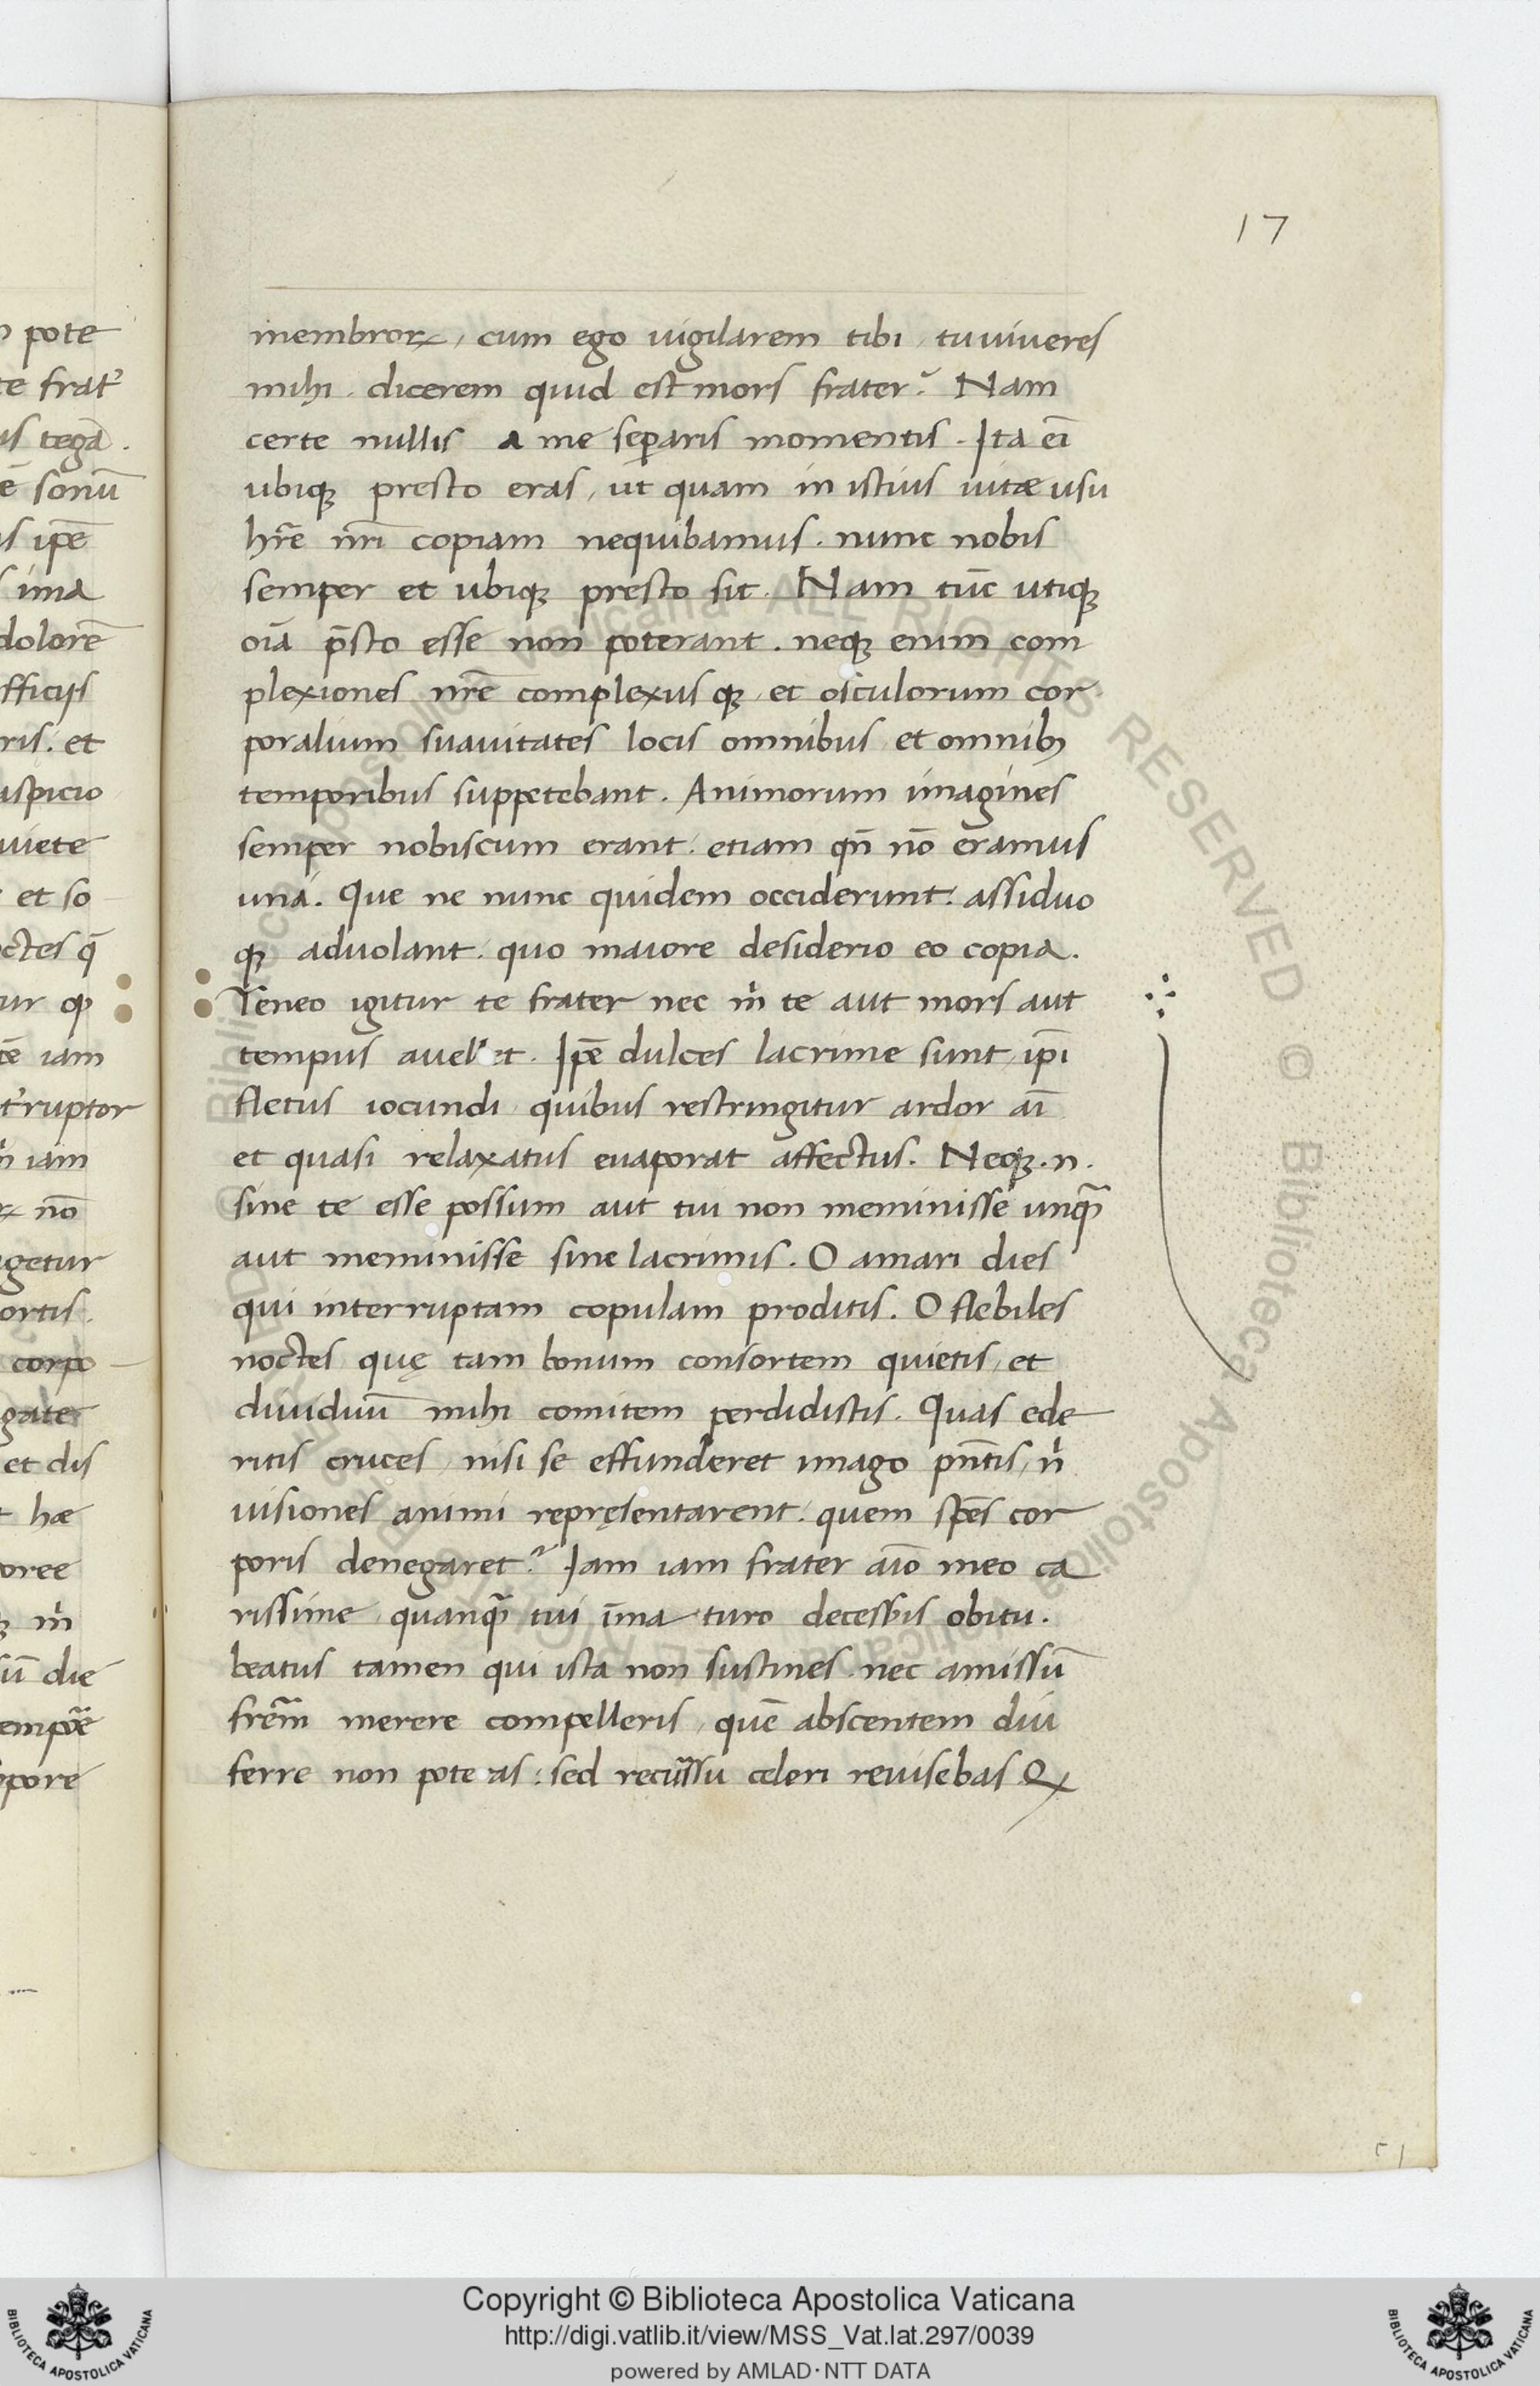 17
n pote
te frat᷒
is tegā.
ē sonū
is ipē
s ima
dolorē
fficijs
ris. et
aspicio
uiete
et so
octes q̄
ur qꝫ
tē iam
t᷒ruptor
iam
ꝝ nō
ugetur
ortis.
corpo
gate
et dis
t hæ
oree
ꝫ m̊
ū die
empōꝛe
pore
membroꝝ, cum ego uigilarem tibi, tu uiueres
mihi. dicerem quid est mors frater? Nam
certe nullis a me seꝑaris momentis. Ita ei̅
ubiqꝫ presto eras, ut quam in istius uitæ usu
hr̄e nr̄i copiam nequibamus. nunc nobis
semper et ubiqꝫ presto sit. Nam tūc utiqꝫ
oīa p̄sto esse non poterant. neqꝫ enim com
plexiones nr̄e complexus qꝫ, et osculorum cor
poralium suauitates locis omnibus et omnibꝫ
temporibus suppetebant. Animorum imagines
semper nobiscum erant. etiam qn̄ nō eramus
una. Que ne nunc quidem occiderunt. assiduo
qꝫ aduolant. quo maiore desiderio eo copia.
Teneo igitur te frater nec m̊ te aut mors aut
tempus auellet. Ipē dulces lacrime sunt, ip̄i
fletus iocundi, quibus restringitur ardor ai̅
et quasi relaxatus euaporat affectus. Neqꝫ .n.
sine te esse possum aut tui non meminisse unqᷓ
aut meminisse sine lacrimis. O amari dies
qui interruptam copulam proditis. O flebiles
noctes quę tam bonum consortem quietis, et
diuiduū mihi comitem perdidistis. Quas ede
ritis cruces, nisi se effunderet imago pn̄tis, n̊
uisiones animi repręsentarent. quem spēs cor
poris denegaret? Iam iam frater aīo meo ca
rissime, quanqᷓ tui īma turo decessis obitu.
beatus tamen qui ista non sustines. nec amissū
frēᷓm merere compelleris, quē abscentem diu
ferre non pote as: sed recuᷤssu celeri reuisebas Qꝝ
Copyright © Biblioteca Apostolica Vaticana
http://digi.vatlib.it/view/MSS_Vat.lat.297/0039
powered by AMLAD·NTT DATA
BIBLIOTECA APOSTOLICA VATICANA
BIBLIOTECA APOSTOLICA VATICANA